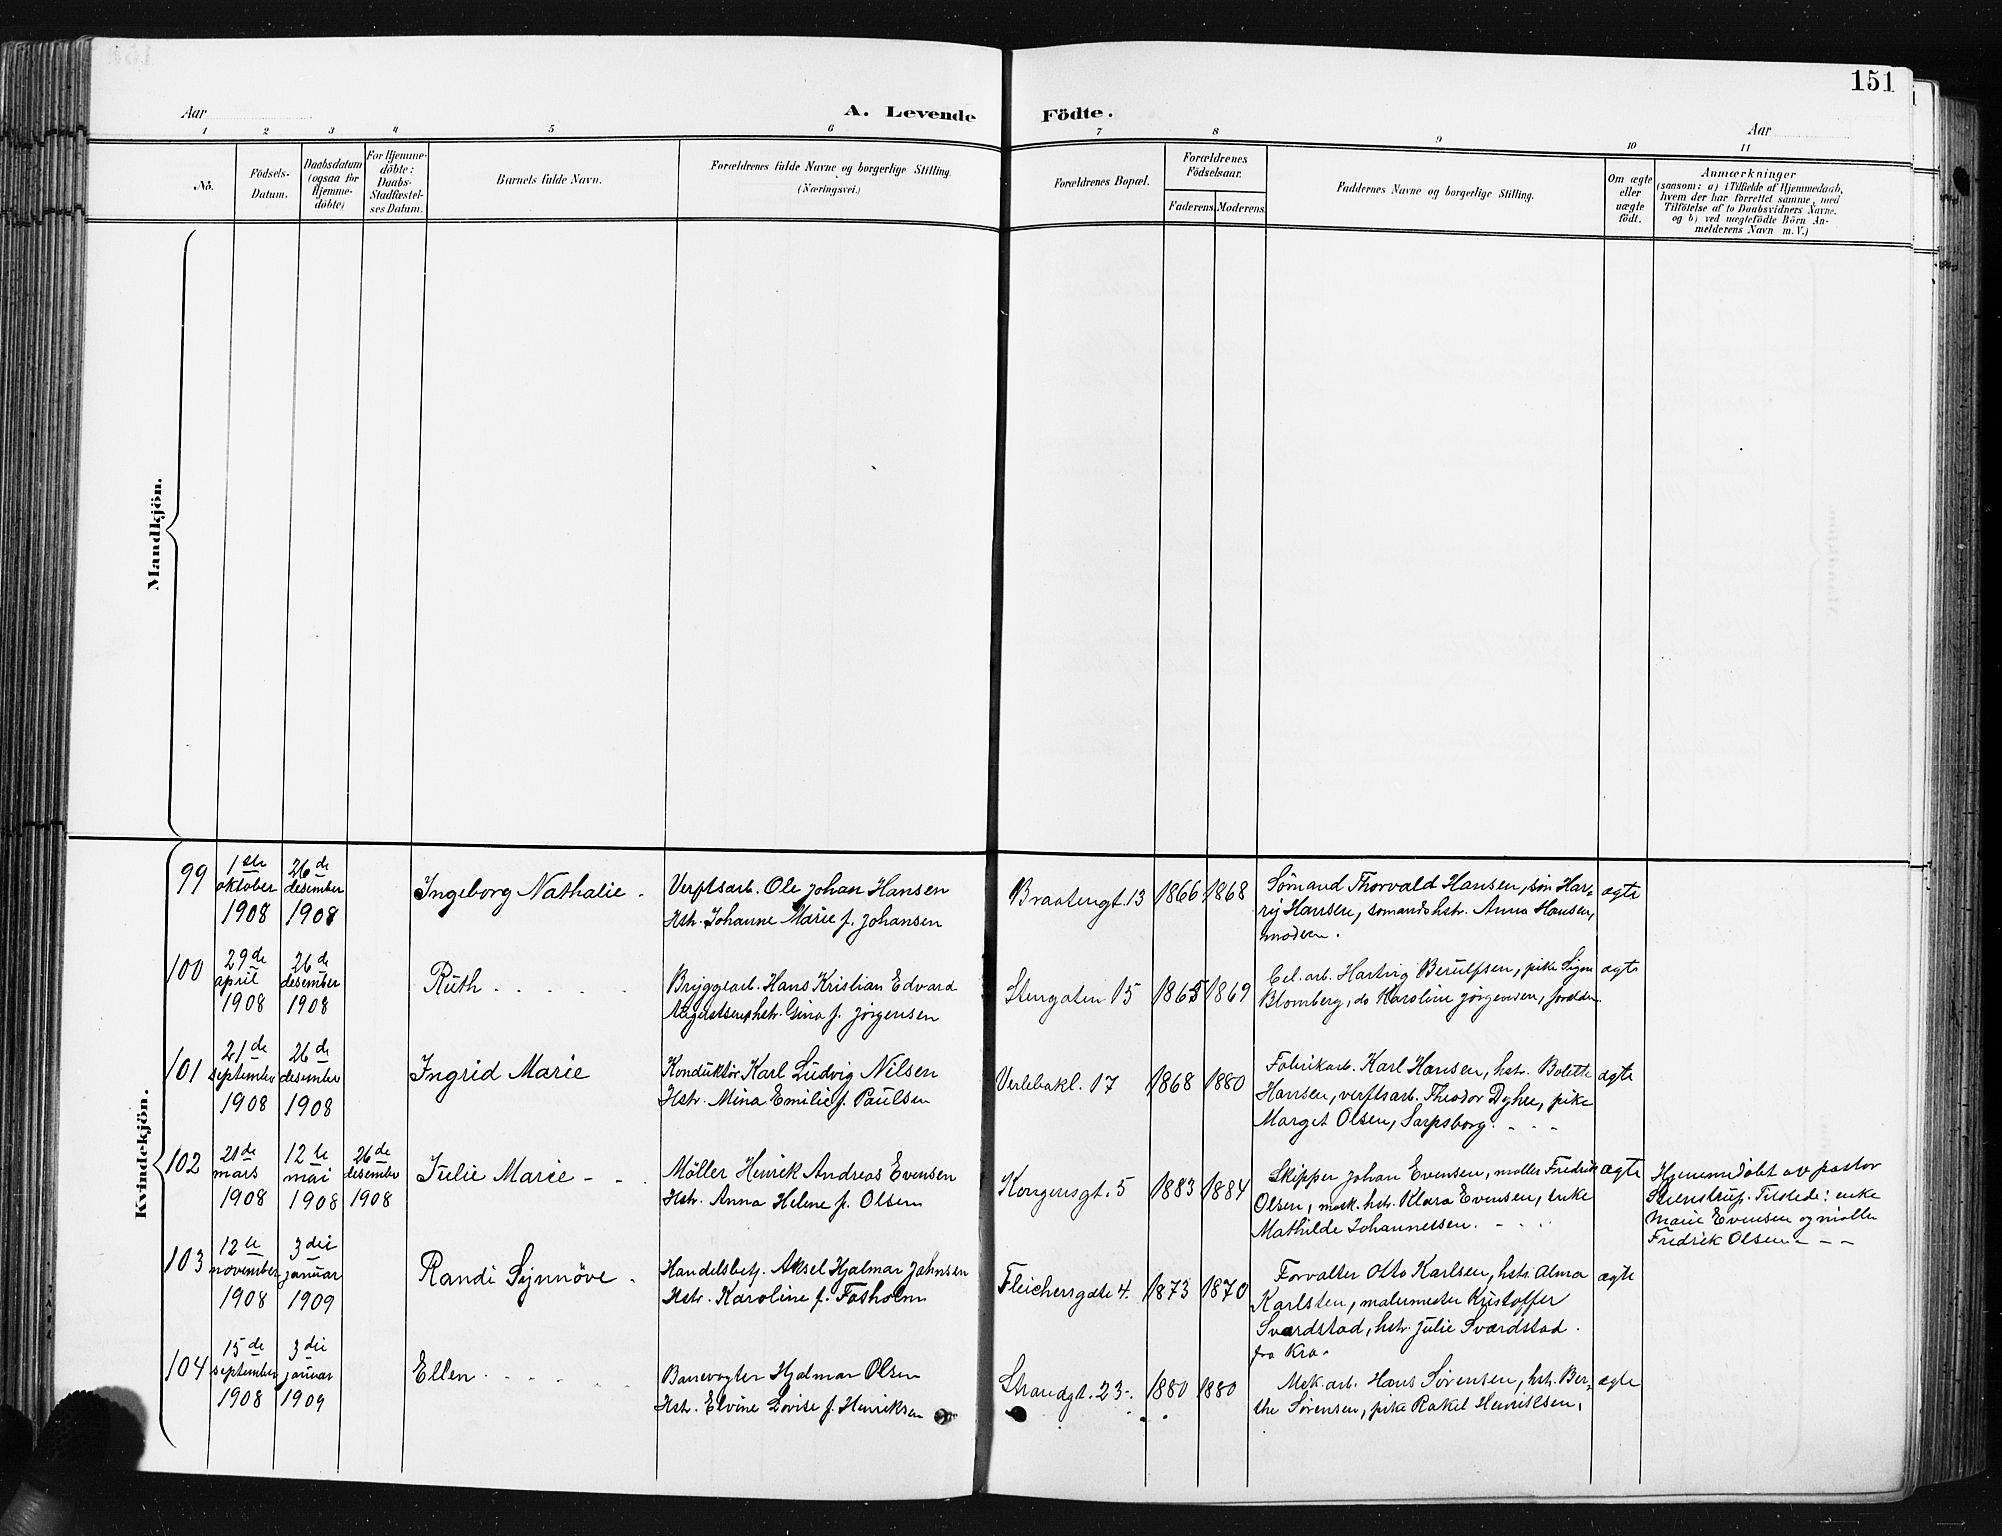 151
Aar
A. Levende Födte.
Aar
1 2 3 4 5 6 7 8 9 10 11
No.
Födsels-
Datum.
Daabsdatum
(ogsaa för
Hjemme-
döbte)
For Hjemme-
döbte:
Daabs-
Stadfæstel-
ses Datum.
Barnets fulde Navn.
Forældrenes fulde Navne og borgerlige Stilling.
(Næringsvei.)
Forældrenes Bopæl.
Forældrenes
Födselsaar.
Faderens. Moderens.
Faddernes Navne og borgerlige Stilling.
Om ægte
eller
uægte
födt.
Anmærkninger
(saasom: a) i Tilfælde af Hjemmedaab,
hvem der har forrettet samme, med
Tilföielse af to Daabsvidners Navne.
og b) ved uægtefödte Börn An-
melderens Navn m. V.)
Mandkjön.
Kvindekjön.
99
1ste
oktober
1908
26de
desember
1908
Ingeborg Nathalie -
Verftsarb. Ole Johan Hansen
Hstr. Johanne Marie f. Johansen
Braatengt. 13
1866
1868
Sömand Thorvald Hansen, sön Har-
ry Hansen, sömandshstr. Anna Hansen,
moderen.
ægte
100
29de
april
1908
26de
desember
1908
Ruth
Bryggearb. Hans Kristian Edvard
hstr. Gina f. Jörgensen
Stengaten 15
1865
1869
Cel. arb. Hartvig Berulfsen, pike Signe
Blomberg, do Karoline Jörgensen, foreldre.
ægte
101
21de
september
1908
26de
desember
1908
Ingrid Marie
Konduktör Karl Ludvig Nilsen
Hstr. Mina Emilie f. Paulsen
Verlebakl. 17
1868
1880
Fabrikarb. Karl Hansen, hstr. Bolette
Hansen, verftsarb. Theodor Dyhre, pike
Marget Olsen, Sarpsborg.
ægte
102
21de
mars
1908
12te
mai
1908
26de
desember
1908
Julie Marie - -
Möller Henrik Andreas Evensen
Hstr. Anna Helene f. Olsen
Kongensgt. 5
1883
1884
Skipper Johan Evensen, möller Fredrik
Olsen, mask. hstr. Klara Evensen, enke
Mathilde Johannessen.
ægte
Hjemmedöbt av pastor
Stenstrup. Tilstede: enke
Marie Evensen og möller
Fredrik Olsen - - -
103
12te
november
1908
3die
januar
1909
Randi Synnöve -
Handelsbetj. Aksel Hjalmar Johnsen
Hstr. Karoline f. Fosholm
Fleichersgate 4.
1873
1870
Forvalter Otto Karlsen, hstr. Alma
Karlsten, malermester Kristoffer
Sværdstad, hstr. Julie Sværdstad.
fra Kra.
ægte
104
15de
september
1908
3die
januar
1909
Ellen
Banevogter Hjalmar Olsen
Hstr. Elvine Lovise f. Henriksen
Strandgt. 23
1880
1880
Mek. arb. Hans Sörensen, hstr. Ber-
the Sörensen, pike Rakel Henriksen,
ægte